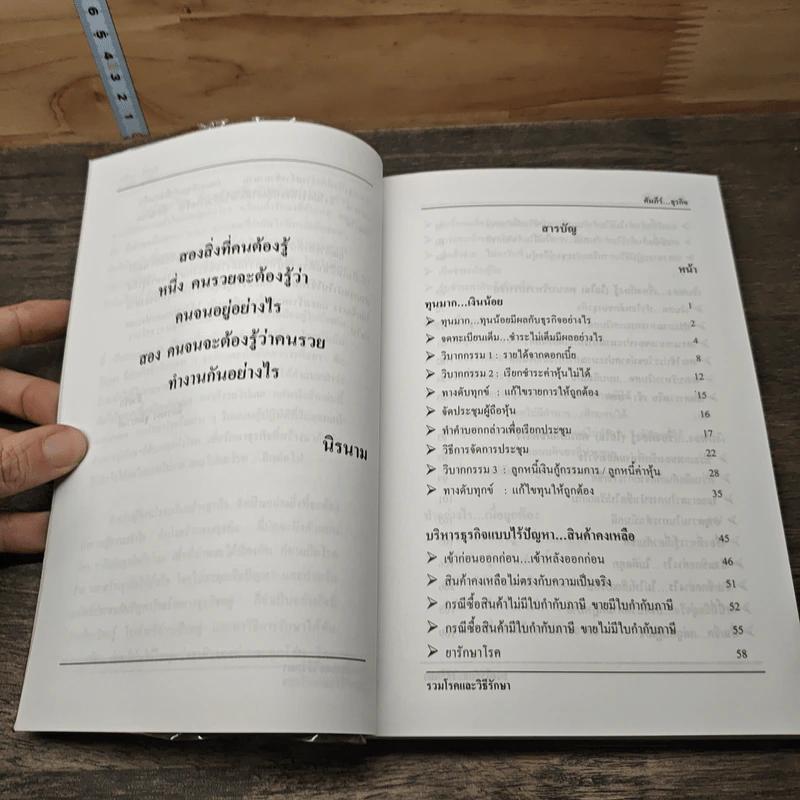 6
5
4
3
2
1
สองสิ่งที่คนต้องรู้
หนึ่ง คนรวยจะต้องรู้ว่า
คนจนอยู่อย่างไร
สอง คนจนจะต้องรู้ว่าคนรวย
ทำงานกันอย่างไร
นิรนาม
คัมภีร์...ธุรกิจ
สารบัญ
หน้า
ทุนมาก...เงินน้อย 1
➢ ทุนมาก...ทุนน้อยมีผลกับธุรกิจอย่างไร 2
➢ จดทะเบียนเต็ม...ชำระไม่เต็มมีผลอย่างไร 4
➢ วิบากกรรม 1 : รายได้จากดอกเบี้ย 8
➢ วิบากกรรม 2 : เรียกชำระค่าหุ้นไม่ได้ 12
➢ ทางดับทุกข์ : แก้ไขรายการให้ถูกต้อง 15
➢ จัดประชุมผู้ถือหุ้น 16
➢ ทำคำบอกกล่าวเพื่อเรียกประชุม 17
➢ วิธีการจัดการประชุม 22
➢ วิบากกรรม 3 : ลูกหนี้เงินกู้กรรมการ / ลูกหนี้ค่าหุ้น 28
➢ ทางดับทุกข์ : แก้ไขทุนให้ถูกต้อง 35
บริหารธุรกิจแบบไร้ปัญหา...สินค้าคงเหลือ 45
➢ เข้าก่อนออกก่อน...เข้าหลังออกก่อน 46
➢ สินค้าคงเหลือไม่ตรงกับความเป็นจริง 51
➢ กรณีซื้อสินค้าไม่มีใบกำกับภาษี ขายมีใบกำกับภาษี 52
➢ กรณีซื้อสินค้ามีใบกำกับภาษี ขายไม่มีใบกำกับภาษี 55
➢ ยารักษาโรค 58
รวมโรคและวิธีรักษา